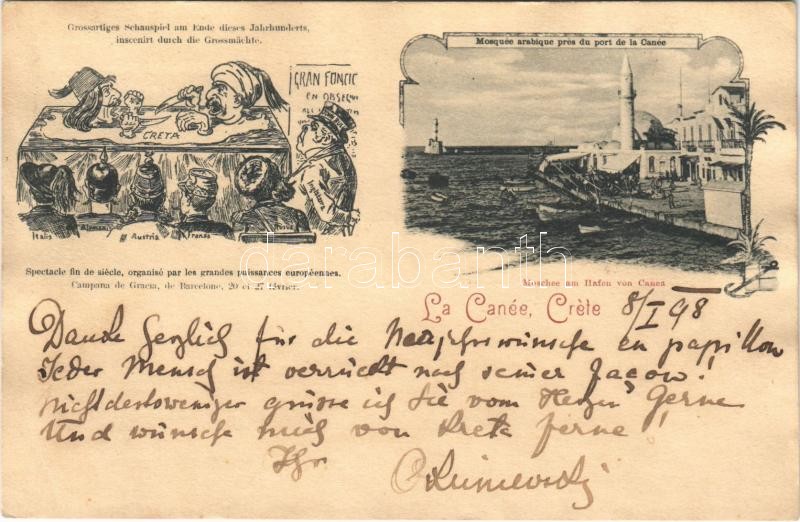 Grossartiges Schauspiel am Ende dieses Jahrhunderts,
inscenirt durch die Grossmächte.
GRAN FONCIC
EN OBSEQUI
CRETA
Italia
Austria
Fransa
Spectacle fin de siècle, organisé par les grandes puissances européennes.
Campana de Gracia, de Barcelone, 20 et 27 février.
Mosquée arabique près du port de la Canée
Moschee am Hafen von Canea
La Canée, Crète
8/I 98
darabanth
Danke herzlich für die Neujahrswünsche en papillon
Jeder Mensch ist verrückt nach seiner Façon!
Nichtsdestoweniger grüsse ich Sie vom Herzen gerne
Und wünsche mich von Kreta ferne!
Ihr